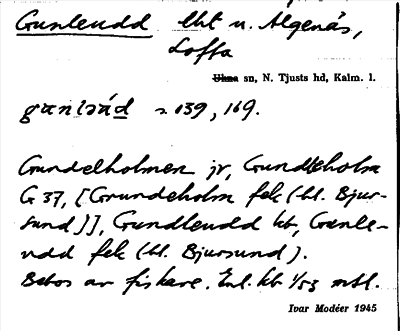 Gunleudd lht u. Algenäs,
Loffta
Ukna sn, N. Tjusts hd, Kalm. l.
139, 169.
Gundelholmen jr, Gundleholm
G 37, [Grundeholm fek (bl. Bjur-
sund)], Gundleudd kb, Gunle-
udd fek (bl. Bjursund).
Bebos av fiskare. Enl. kb 1/53 mtl.
Ivar Modéer 1945